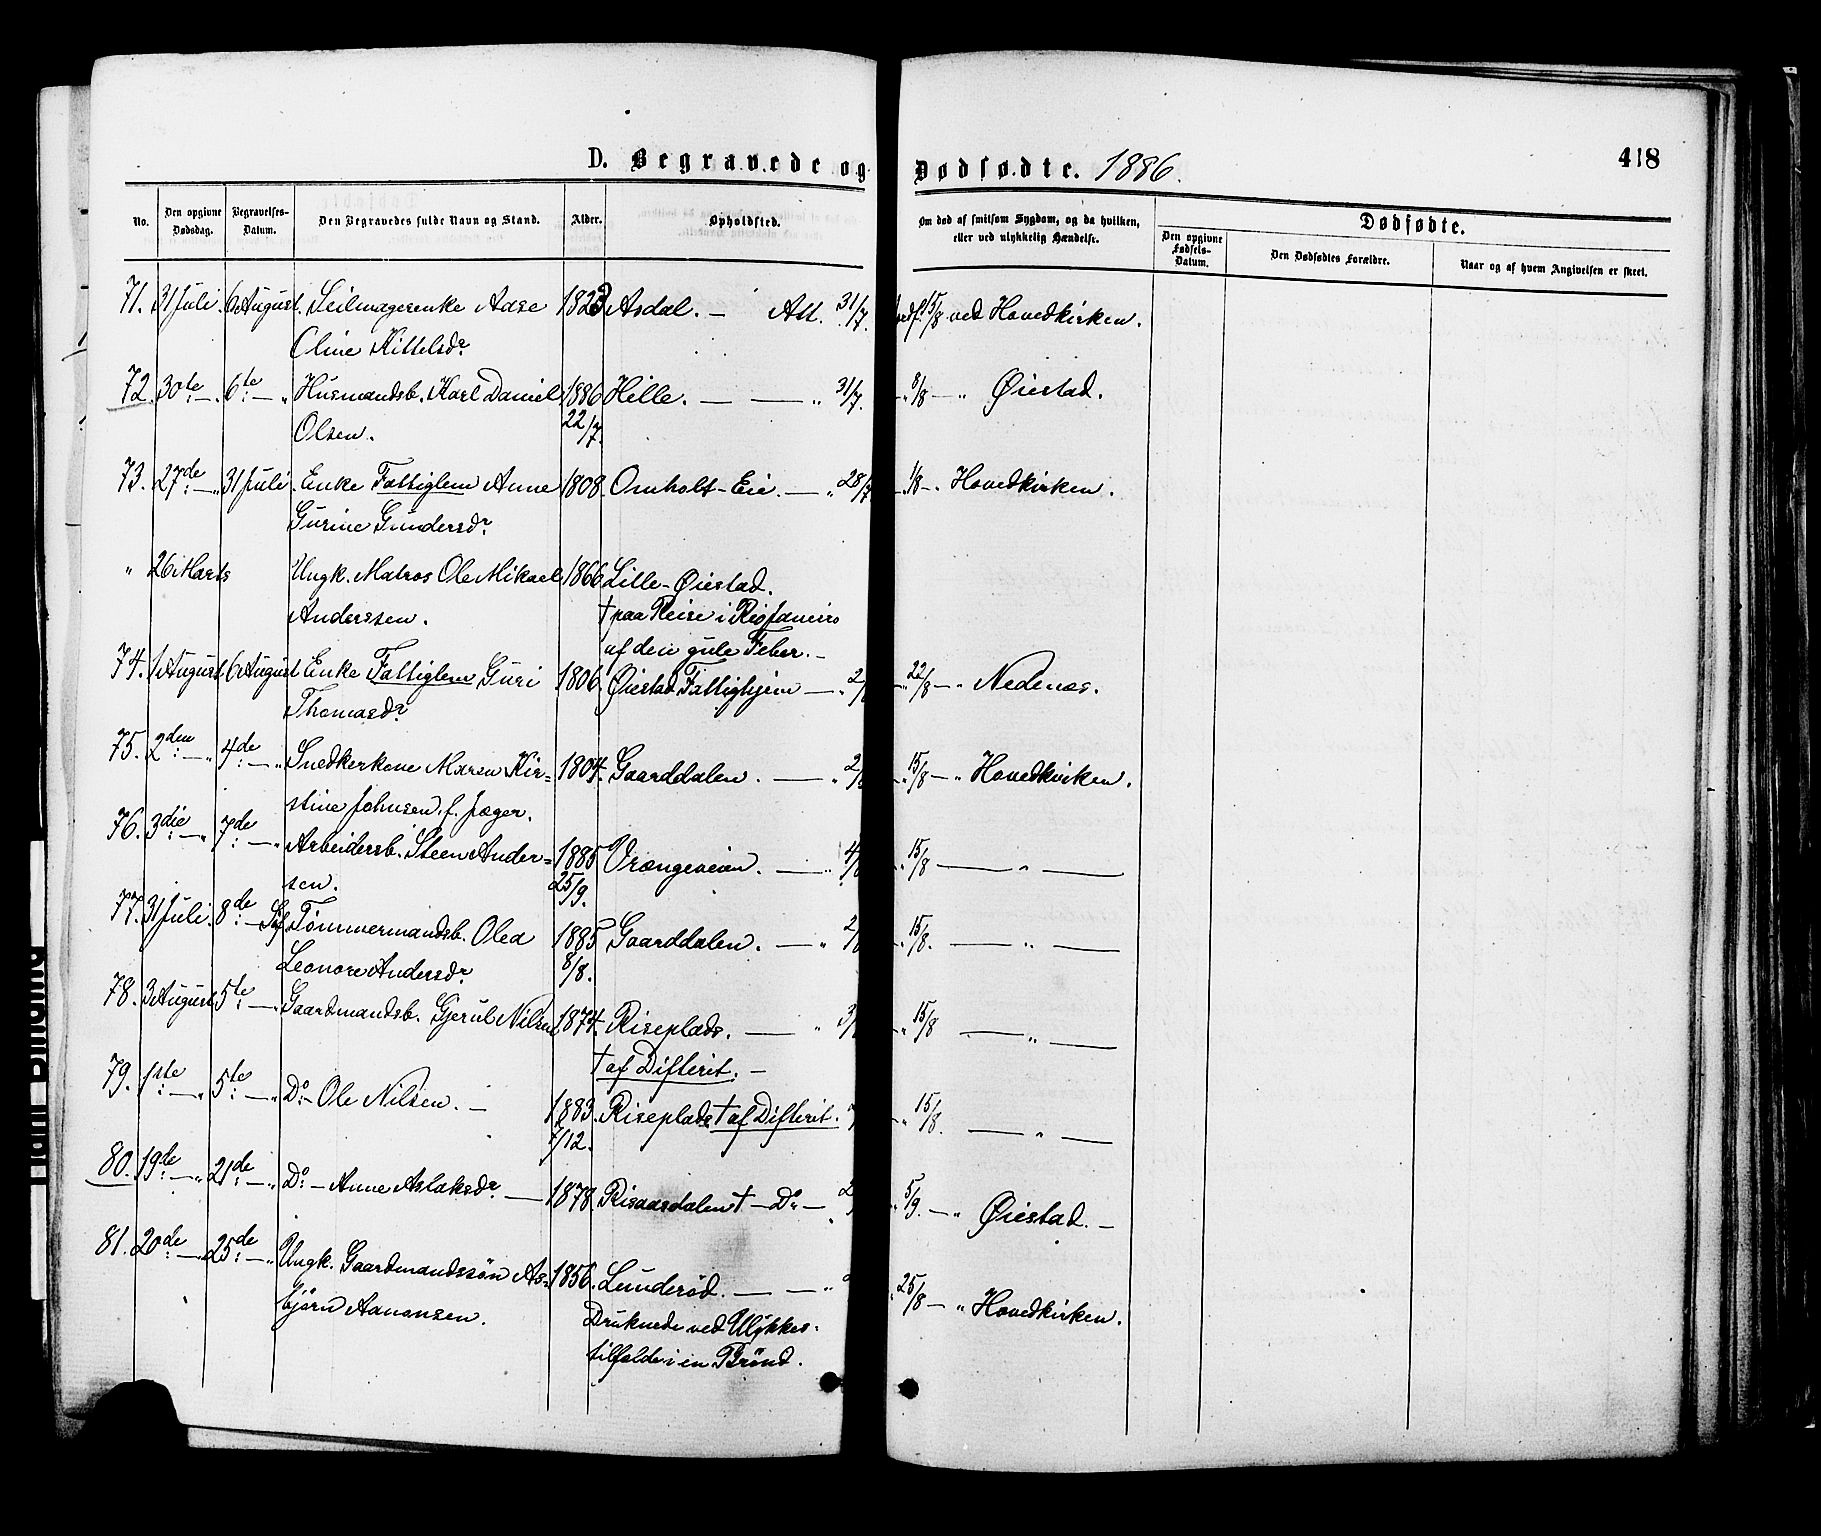 D. Begravede og Dødfødte. 1886. 418
No. Den opgivne Dødsdag. Begravelses-Datum. Den Begravedes fulde Navn og Stand. Alder. Opholdsted. Om død af smitsom Sygdom, og da hvilken, eller ved ulykkelig Hændelse. Dødfødte.
Den opgivne Fødsels-Datum. Den Dødfødtes Forældre. Naar og af hvem Angivelsen er skeet.
71. 31 Juli. 6 August. Seilmagerenke Aase 1823 Asdal. — Att. 31/7. 15/8 ved Hovedkirken.
Oline Kittelsdr
72. 30te — „ 6te — „ Husmandsb. Karl Daniel 1886 Hille. — — „ 31/7. — „ 8/8 — „ Øiestad.
Olsen. 22/7.
73. 27de — „ 31 Juli. Enke Fattiglem Anne 1808. Omholt-Eie. — „ 28/7 — „ 1/8 — „ Hovedkirken.
Gurine Gundersdr
„ 26 Marts Ungk. Matros Ole Mikael 1866 Lille-Øiestad.
Anderssen. † paa Reise i Rio Janeiro
af den gule Feber. —
74. 1 August 6 August Enke Fattiglem Guri 1806. Øiestad Fattighjem — „ 2/ „ 22/8 — „ Nedenæs.
Thomasdr
75. 2den — „ 4de — „ Snedkerkone Maren Kir= 1804. Gaarddalen. — „ 2/ „ 15/8 — „ Hovedkirken.
stine Johnsen f. Jæger.
76. 3die — „ 7de — „ Arbeidersb. Steen Ander= 1885 Vrængeveien. — „ 4/ „ 15/8 — „ —
sen. 25/9.
77. 31 Juli. 8de — Tømmermandsb. Olea 1885 Gaarddalen. — „ 2/ „ 15/8. — „ —
Leonore Andersdr 8/8.
78. 3 August 5te — Gaardmandsb. Gjerul Nilsen 1874. Riseplads. — „ 3/ „ 15/8 — „ —
† af Difterit. —
79. 1ste — „ 5te — „ Do — Ole Nilsen. — 1883. Riseplads † af Difterit. „ 15/8. — „ —
7/12.
80. 19de — „ 21de — „ Do — Anne Aslaksdr — 1878. Risaasdalen † — Do — 2 „ 5/9. — „ Øiestad. —
81. 20de — „ 25de — „ Ungk. Gaardmandssøn As= 1856. Lunderød. — — „ „ 25/8 — „ Hovedkirken.
bjørn Aanonsen. Druknede ved Ulykkes-
tilfælde i en Brønd.